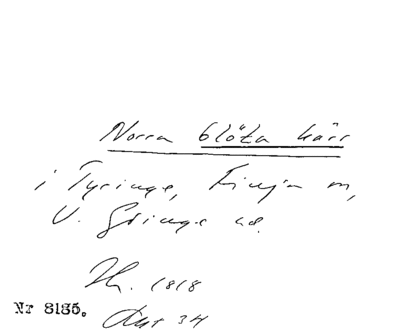 Norra blöta kärr
i Tyringe, Finja sn,
V. Göinge hd.
1818
Nr 8185.
Akt 34